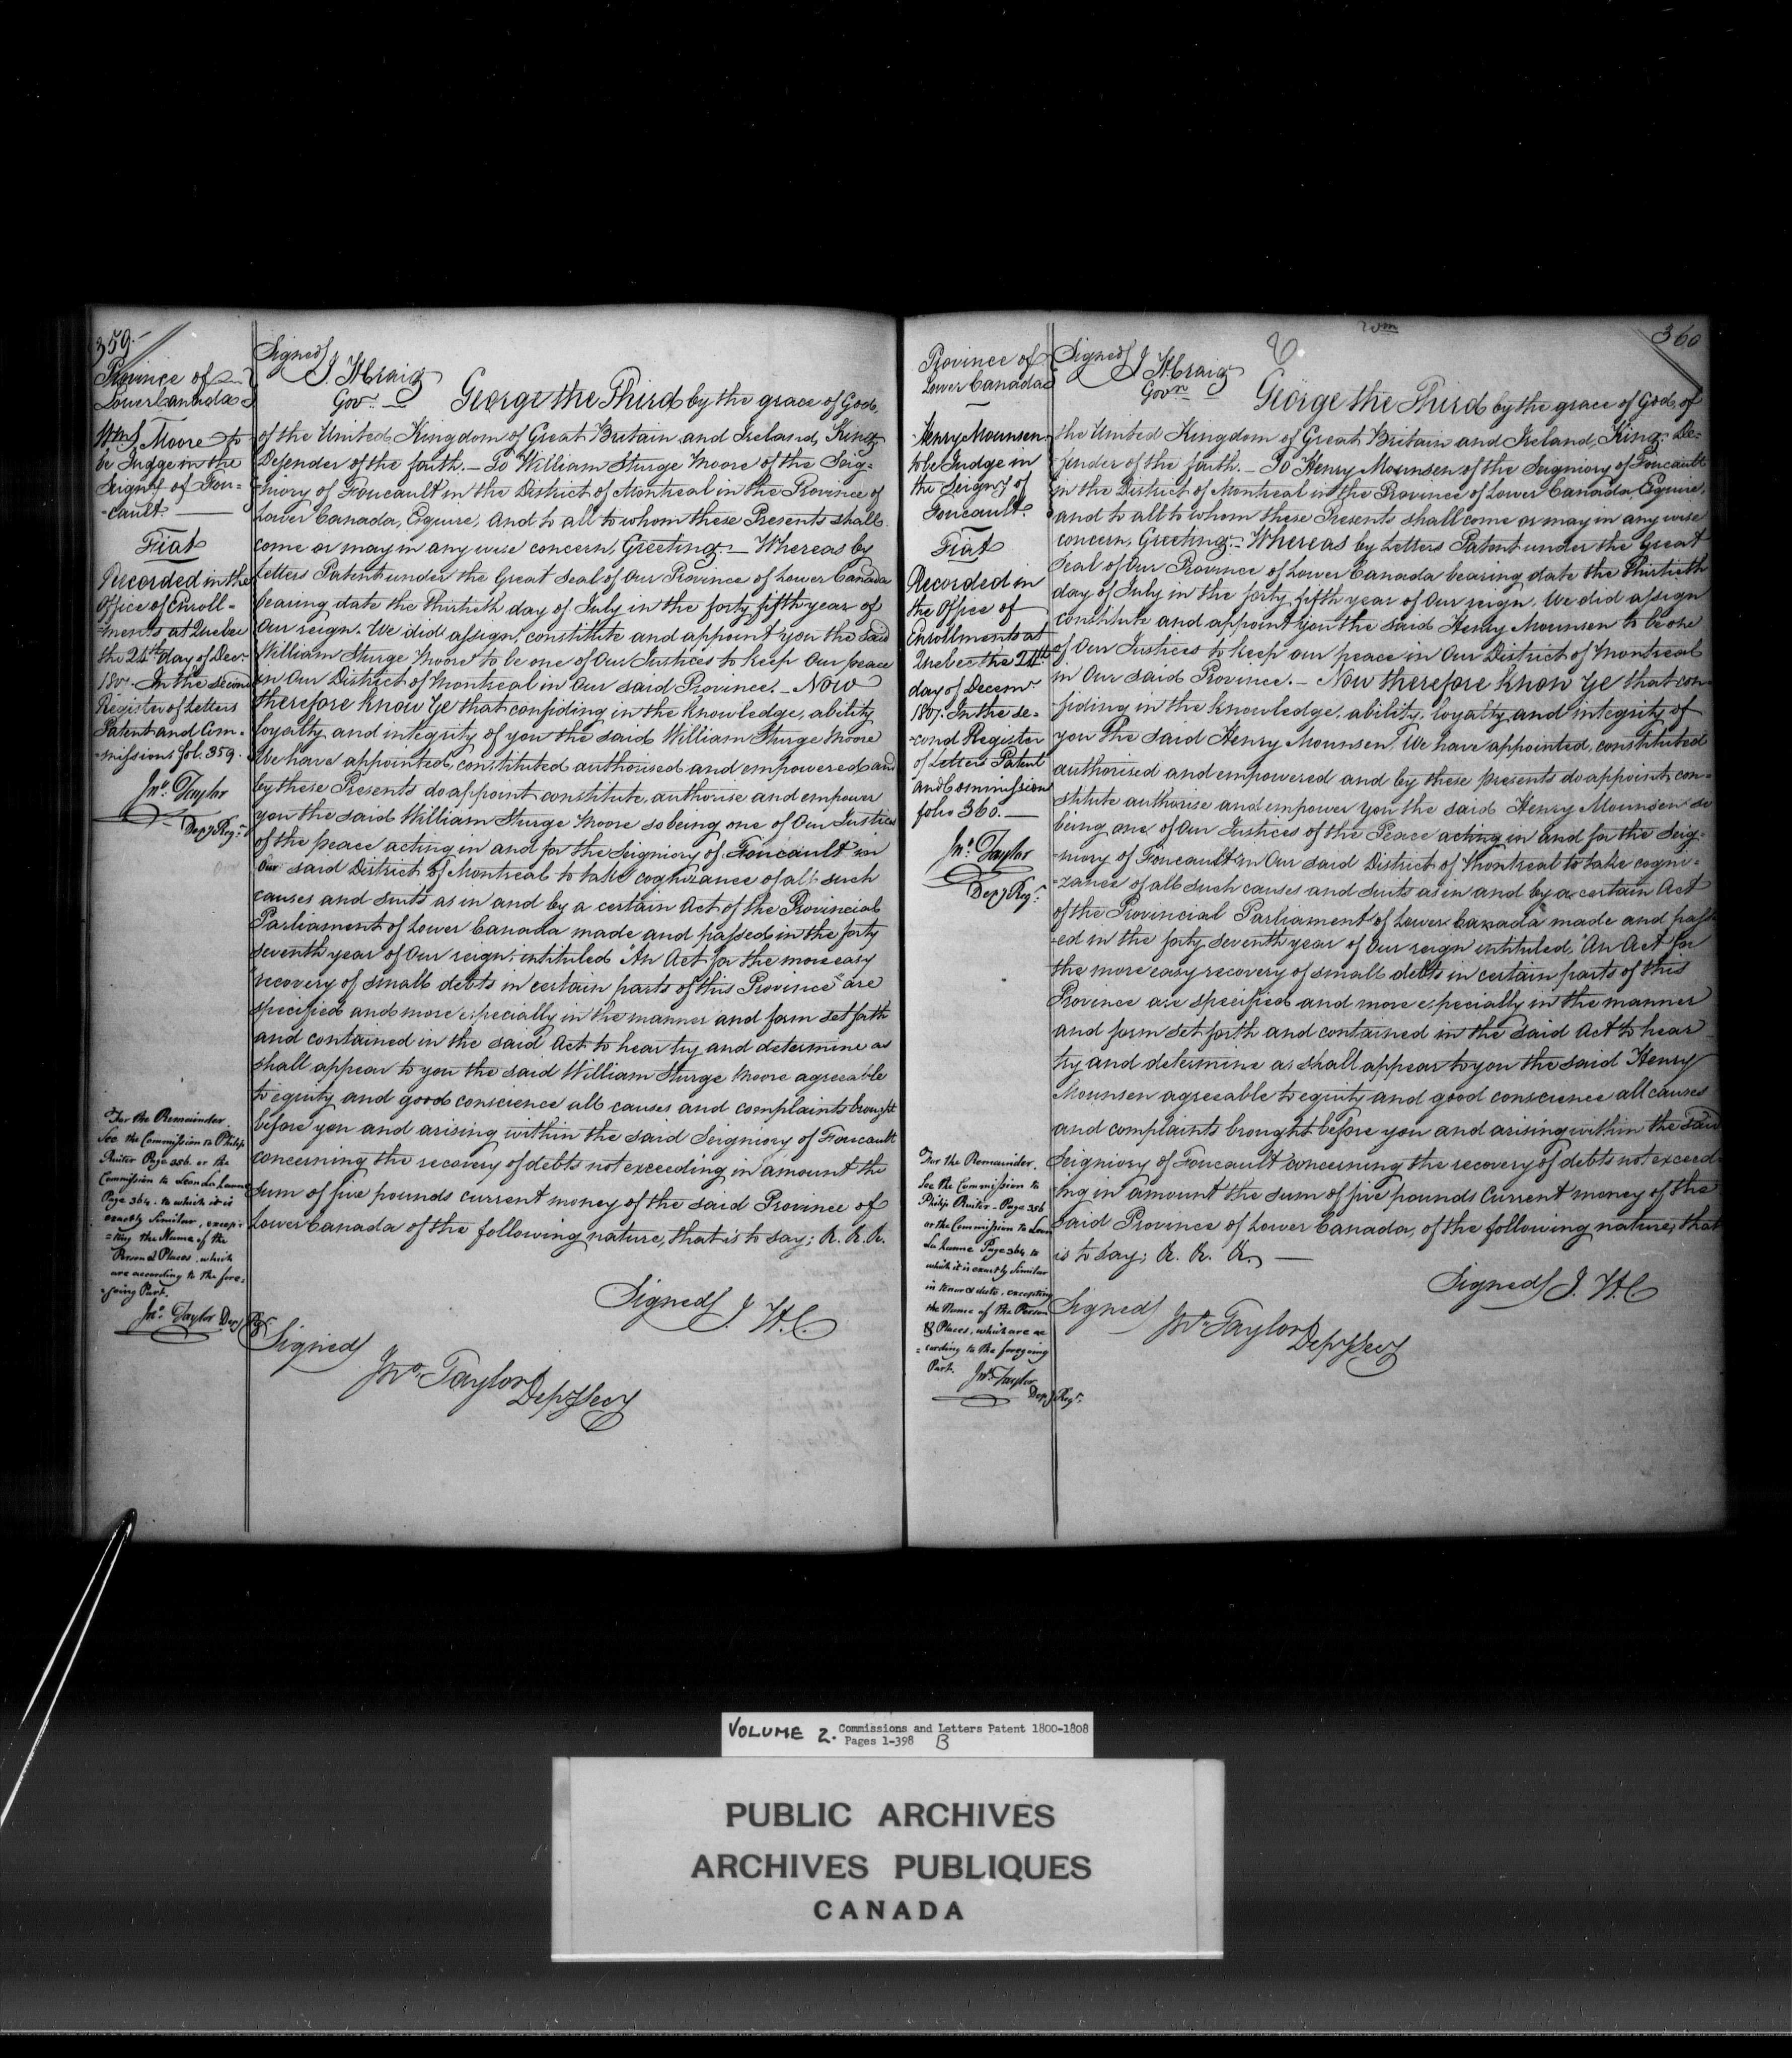 359.
Province of
Lower Canada
Wm S Moore to
be Judge in the
Seignry of Fou=
=cault.
Fiat
Recorded in the
Office of Enroll=
=ments at Quebec
the 24th day of Decr
1807. In the second
Register of Letters
Patent and Com=
=missions fol. 359.
Jno. Taylor
Depy Regr.
For the Remainder
See the Commission to Philip
Ruiter Page 356. or the
Commission to Leon
Page 364. to which it is
exactly Similar, excep=
=ting the Name of the
Person & Places, which
are according to the fore=
=going Part.
Jno. Taylor Depy Regr.
Signed
J. H Craig
Govr.
George the Third by the grace of God,
of the United Kingdom of Great Britain and Ireland, King
Defender of the faith. — To William Sturge Moore of the Seig=
=niory of Foucault in the District of Montreal in the Province of
Lower Canada, Esquire, and to all to whom these Presents shall
come or may in any wise concern, Greeting. — Whereas by
Letters Patent under the Great Seal of Our Province of Lower Canada
bearing date the Thirtieth day of July in the forty fifth year of
Our reign. We did assign, constitute and appoint you the said
William Sturge Moore to be one of Our Justices to keep Our peace
in Our District of Montreal in Our said Province. — Now
therefore know Ye that confiding in the knowledge, ability
loyalty and integrity of you the said William Sturge Moore
We have appointed, constituted authorised and empowered and
by these Presents do appoint constitute, authorise and empower
you the said William Sturge Moore so being one of Our Justices
of the peace acting in and for the Seigniory of Foucault in
Our said District of Montreal to take cognizance of all such
causes and suits as in and by a certain Act of the Provincial
Parliament of Lower Canada made and passed in the forty
seventh year of Our reign, intituled "An Act for the more easy
recovery of small debts in certain parts of this Province" are
specified and more especially in the manner and form set forth
and contained in the said Act to hear try and determine as
shall appear to you the said William Sturge Moore agreeable
to equity and good conscience all causes and complaints brought
before you and arising within the said Seigniory of Foucault
concerning the recovery of debts not exceeding in amount the
Sum of five pounds current money of the said Province of
Lower Canada of the following nature, that is to say; &. &. &.
Signed J. H. C.
Signed
Jno. Taylor
Depy Secy
360
Province of
Lower Canada
Henry Mounsen
to be Judge in
the Seignry of
Foucault.
Fiat
Recorded in
the Office of
Enrollments at
Quebec the 24th
day of Decemr
1807. In the se=
=cond Register
of Letters Patent
and Commission
folio 360. —
Jno. Taylor
Depy Regr.
For the Remainder.
See the Commission to
Philip Ruiter - Page 356
or the Commission to Leon
Page 364 to
which it is exactly Similar
in tenor & date, excepting
the Name of the Person
& Places, which are ac
=cording to the foregoing
Part. Jno. Taylor
Depy Regr.
Signed
J H Craig
Govr
George the Third by the grace of God, of
the United Kingdom of Great Britain and Ireland, King. De=
=fender of the faith. — To Henry Mounsen of the Seigniory of Foucault
in the District of Montreal in the Province of Lower Canada, Esquire,
and to all to whom these Presents shall come or may in any wise
concern, Greeting. — Whereas by Letters Patent under the Great
Seal of Our Province of Lower Canada bearing date the Thirtieth
day of July in the forty fifth year of Our reign. We did assign
constitute and appoint you the said Henry Mounsen to be one
of Our Justices to keep our peace in Our District of Montreal
in Our said Province. — Now therefore know Ye that con=
=fiding in the knowledge, ability, loyalty and integrity of
you the said Henry Mounsen. We have appointed, constituted
authorised and empowered and by these presents do appoint, con=
stitute authorise and empower you the said Henry Mounsen so
being one of Our Justices of the Peace acting in and for the Seig=
=niory of Foucault in Our said District of Montreal to take cogni=
=zance of all such causes and suits as in and by a certain Act
of the Provincial Parliament of Lower Canada made and pass
=ed in the forty seventh year of Our reign intituled, "An Act for
the more easy recovery of small debts in certain parts of this
Province are specified and more especially in the manner
and form set forth and contained in the said Act to hear
try and determine as shall appear to you the said Henry
Mounsen agreeable to equity and good conscience all causes
and complaints brought before you and arising within the said
Seigniory of Foucault concerning the recovery of debts not exceed=
=ing in amount the sum of five pounds Current money of the
said Province of Lower Canada, of the following nature, that
is to say; &. &. &. —
Signed J. H. C
Signed
Jno Taylor
Depy Secy
VOLUME 2. Commissions and Letters Patent 1800-1808
Pages 1-398 B
PUBLIC ARCHIVES
ARCHIVES PUBLIQUES
CANADA